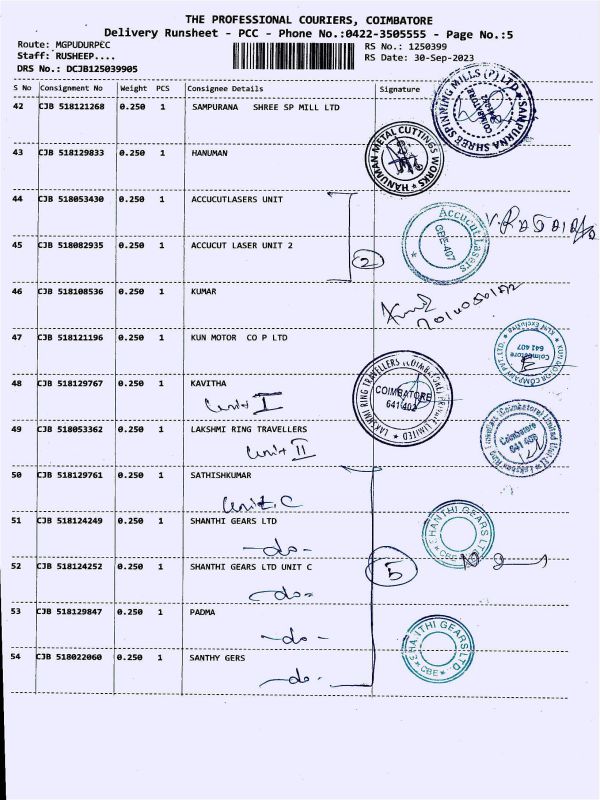 THE PROFESSIONAL COURIERS, COIMBATORE
Delivery Runsheet - PCC - Phone No.:0422-3505555 - Page No.:5
Route: MGPUDURPCC RS No.: 1250399
Staff: RUSHEEP.... RS Date: 30-Sep-2023
DRS No.: DCJB125039905
S No Consignment No Weight PCS Consignee Details Signature
42 CJB 518121268 0.250 1 SAMPURANA SHREE SP MILL LTD
SAMPURNA SHREE SPINNING MILLS (P) LTD
43 CJB 518129833 0.250 1 HANUMAN
HANUMAN METAL CUTTINGS WORKS
44 CJB 518053430 0.250 1 ACCUCUTLASERS UNIT
Accucut Lasers
CBE-407
45 CJB 518082935 0.250 1 ACCUCUT LASER UNIT 2
2
46 CJB 518108536 0.250 1 KUMAR
47 CJB 518121196 0.250 1 KUN MOTOR CO P LTD
KUN MOTOR COMPANY PVT. LTD.
Kun Exclusive
Coimbatore
641 407
48 CJB 518129767 0.250 1 KAVITHA
Unit I
LAKSHMI RING TRAVELLERS (Coimbatore) PRIVATE LIMITED
COIMBATORE
641 402
49 CJB 518053362 0.250 1 LAKSHMI RING TRAVELLERS
Unit II
Coimbatore
50 CJB 518129761 0.250 1 SATHISHKUMAR
Unit. C
51 CJB 518124249 0.250 1 SHANTHI GEARS LTD
-do-
SHANTHI GEARS LTD
CBE
52 CJB 518124252 0.250 1 SHANTHI GEARS LTD UNIT C
-do-
5
53 CJB 518129847 0.250 1 PADMA
-do-
54 CJB 518022060 0.250 1 SANTHY GERS
-do-
GEARS LTD
CBE